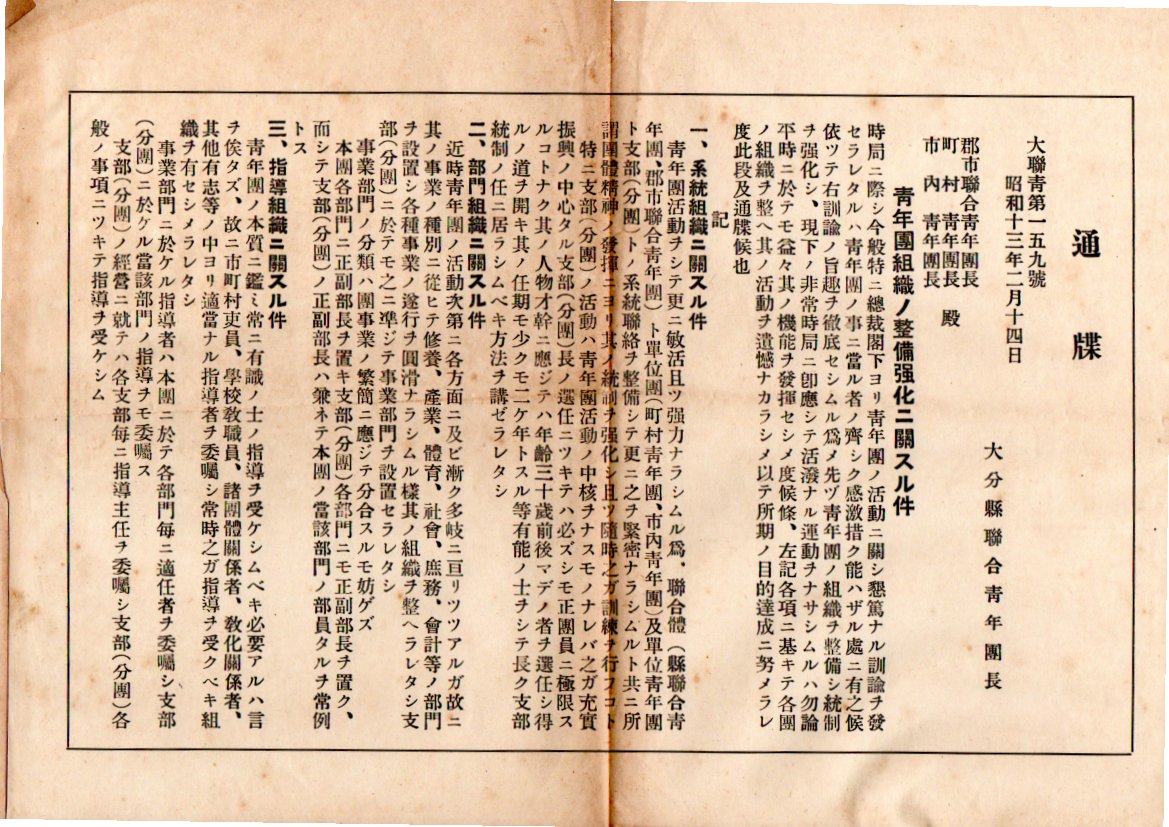 通牒
大聯靑第一五九號
昭和十三年二月十四日
大分縣聯合靑年團長
郡市聯合靑年團長
町村靑年團長 殿
市內靑年團長
靑年團組織ノ整備强化ニ關スル件
時局ニ際シ今般特ニ總裁閣下ヨリ靑年團ノ活動ニ關シ懇篤ナル訓諭ヲ發
セラレタルハ靑年團ノ事ニ當ル者ノ齊シク感激措ク能ハザル處ニ有之候
依ツテ右訓諭ノ旨趣ヲ徹底セシムル爲メ先ヅ靑年團ノ組織ヲ整備シ統制
ヲ强化シ、現下ノ非常時局ニ卽應シテ活潑ナル運動ヲナサシムルハ勿論
平時ニ於テモ益々其ノ機能ヲ發揮セシメ度候條、左記各項ニ基キテ各團
ノ組織ヲ整ヘ其ノ活動ヲ遺憾ナカラシメ以テ所期ノ目的達成ニ努メラレ
度此段及通牒候也
記
一、系統組織ニ關スル件
靑年團活動ヲシテ更ニ敏活且ツ强力ナラシムル爲、聯合體（縣聯合靑
年團、郡市聯合靑年團）ト單位團（町村靑年團、市內靑年團）及單位靑年團
ト支部（分團）トノ系統聯絡ヲ整備シテ更ニ之ヲ緊密ナラシムルト共ニ所
謂團體精神ノ發揮ニヨリ其ノ統制ヲ强化シ且ツ隨時之ガ訓練ヲ行フコト
特ニ支部（分團）ノ活動ハ靑年團活動ノ中核ヲナスモノナレバ之ガ充實
振興ノ中心タル支部（分團）長ノ選任ニツキテハ必ズシモ正團員ニ極限ス
ルコトナク其ノ人物才幹ニ應ジテハ年齡三十歲前後マデノ者ヲ選任シ得
ルノ道ヲ開キ其ノ任期モ少クモ二ケ年トスル等有能ノ士ヲシテ長ク支部
統制ノ任ニ居ラシムベキ方法ヲ講ゼラレタシ
二、部門組織ニ關スル件
近時靑年團ノ活動次第ニ各方面ニ及ビ漸ク多岐ニ亘リツツアルガ故ニ
其ノ事業ノ種別ニ從ヒテ修養、產業、體育、社會、庶務、會計等ノ部門
ヲ設置シ各種事業ノ遂行ヲ圓滑ナラシムル樣其ノ組織ヲ整ヘラレタシ支
部（分團）ニ於テモ之ニ準ジテ事業部門ヲ設置セラレタシ
事業部門ノ分類ハ團事業ノ繁簡ニ應ジテ分合スルモ妨ゲズ
本團各部門ニ正副部長ヲ置キ支部（分團）各部門ニモ正副部長ヲ置ク、
而シテ支部（分團）ノ正副部長ハ兼ネテ本團ノ當該部門ノ部員タルヲ常例
トス
三、指導組織ニ關スル件
靑年團ノ本質ニ鑑ミ常ニ有識ノ士ノ指導ヲ受ケシムベキ必要アルハ言
ヲ俟タズ、故ニ市町村吏員、學校敎職員、諸團體關係者、敎化關係者、
其他有志等ノ中ヨリ適當ナル指導者ヲ委囑シ常時之ガ指導ヲ受クベキ組
織ヲ有セシメラレタシ
事業部門ニ於ケル指導者ハ本團ニ於テ各部門每ニ適任者ヲ委囑シ支部
（分團）ニ於ケル當該部門ノ指導ヲモ委囑ス
支部（分團）ノ經營ニ就テハ各支部每ニ指導主任ヲ委囑シ支部（分團）各
般ノ事項ニツキテ指導ヲ受ケシム